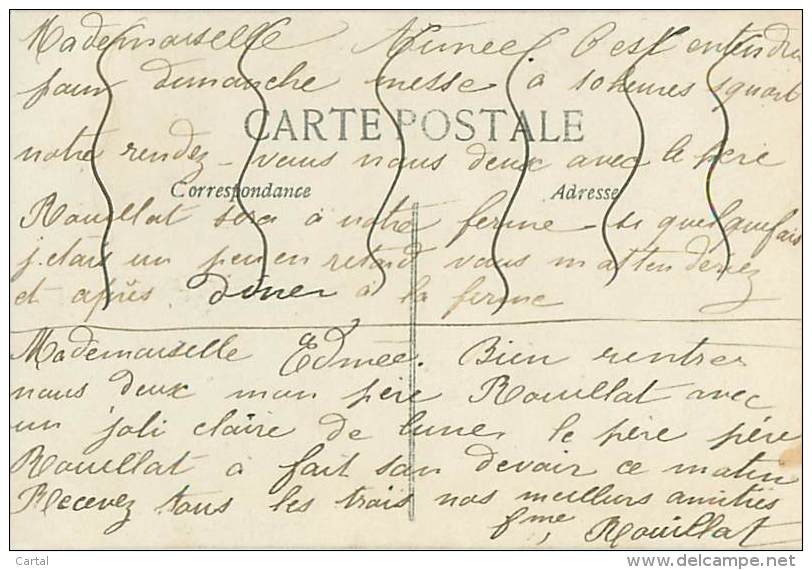 Mademoiselle Aimée. C'est entendu
pour dimanche messe à 10 heures
CARTE POSTALE
notre rendez-vous nous deux avec le père
Correspondance
Adresse
Rouillat sera à notre ferme - si quelquefois
j'etais un peu en retard vous m'attenderiez
et après diner à la ferme
Mademoiselle Edmée. Bien rentrer
nous deux mon père Rouillat avec
un joli claire de lune le père père
Rouillat à fait son devoir ce matin
Recevez tous les trois nos meilleurs amitiés
Fme, Rouillat
Cartal
delcampe.net